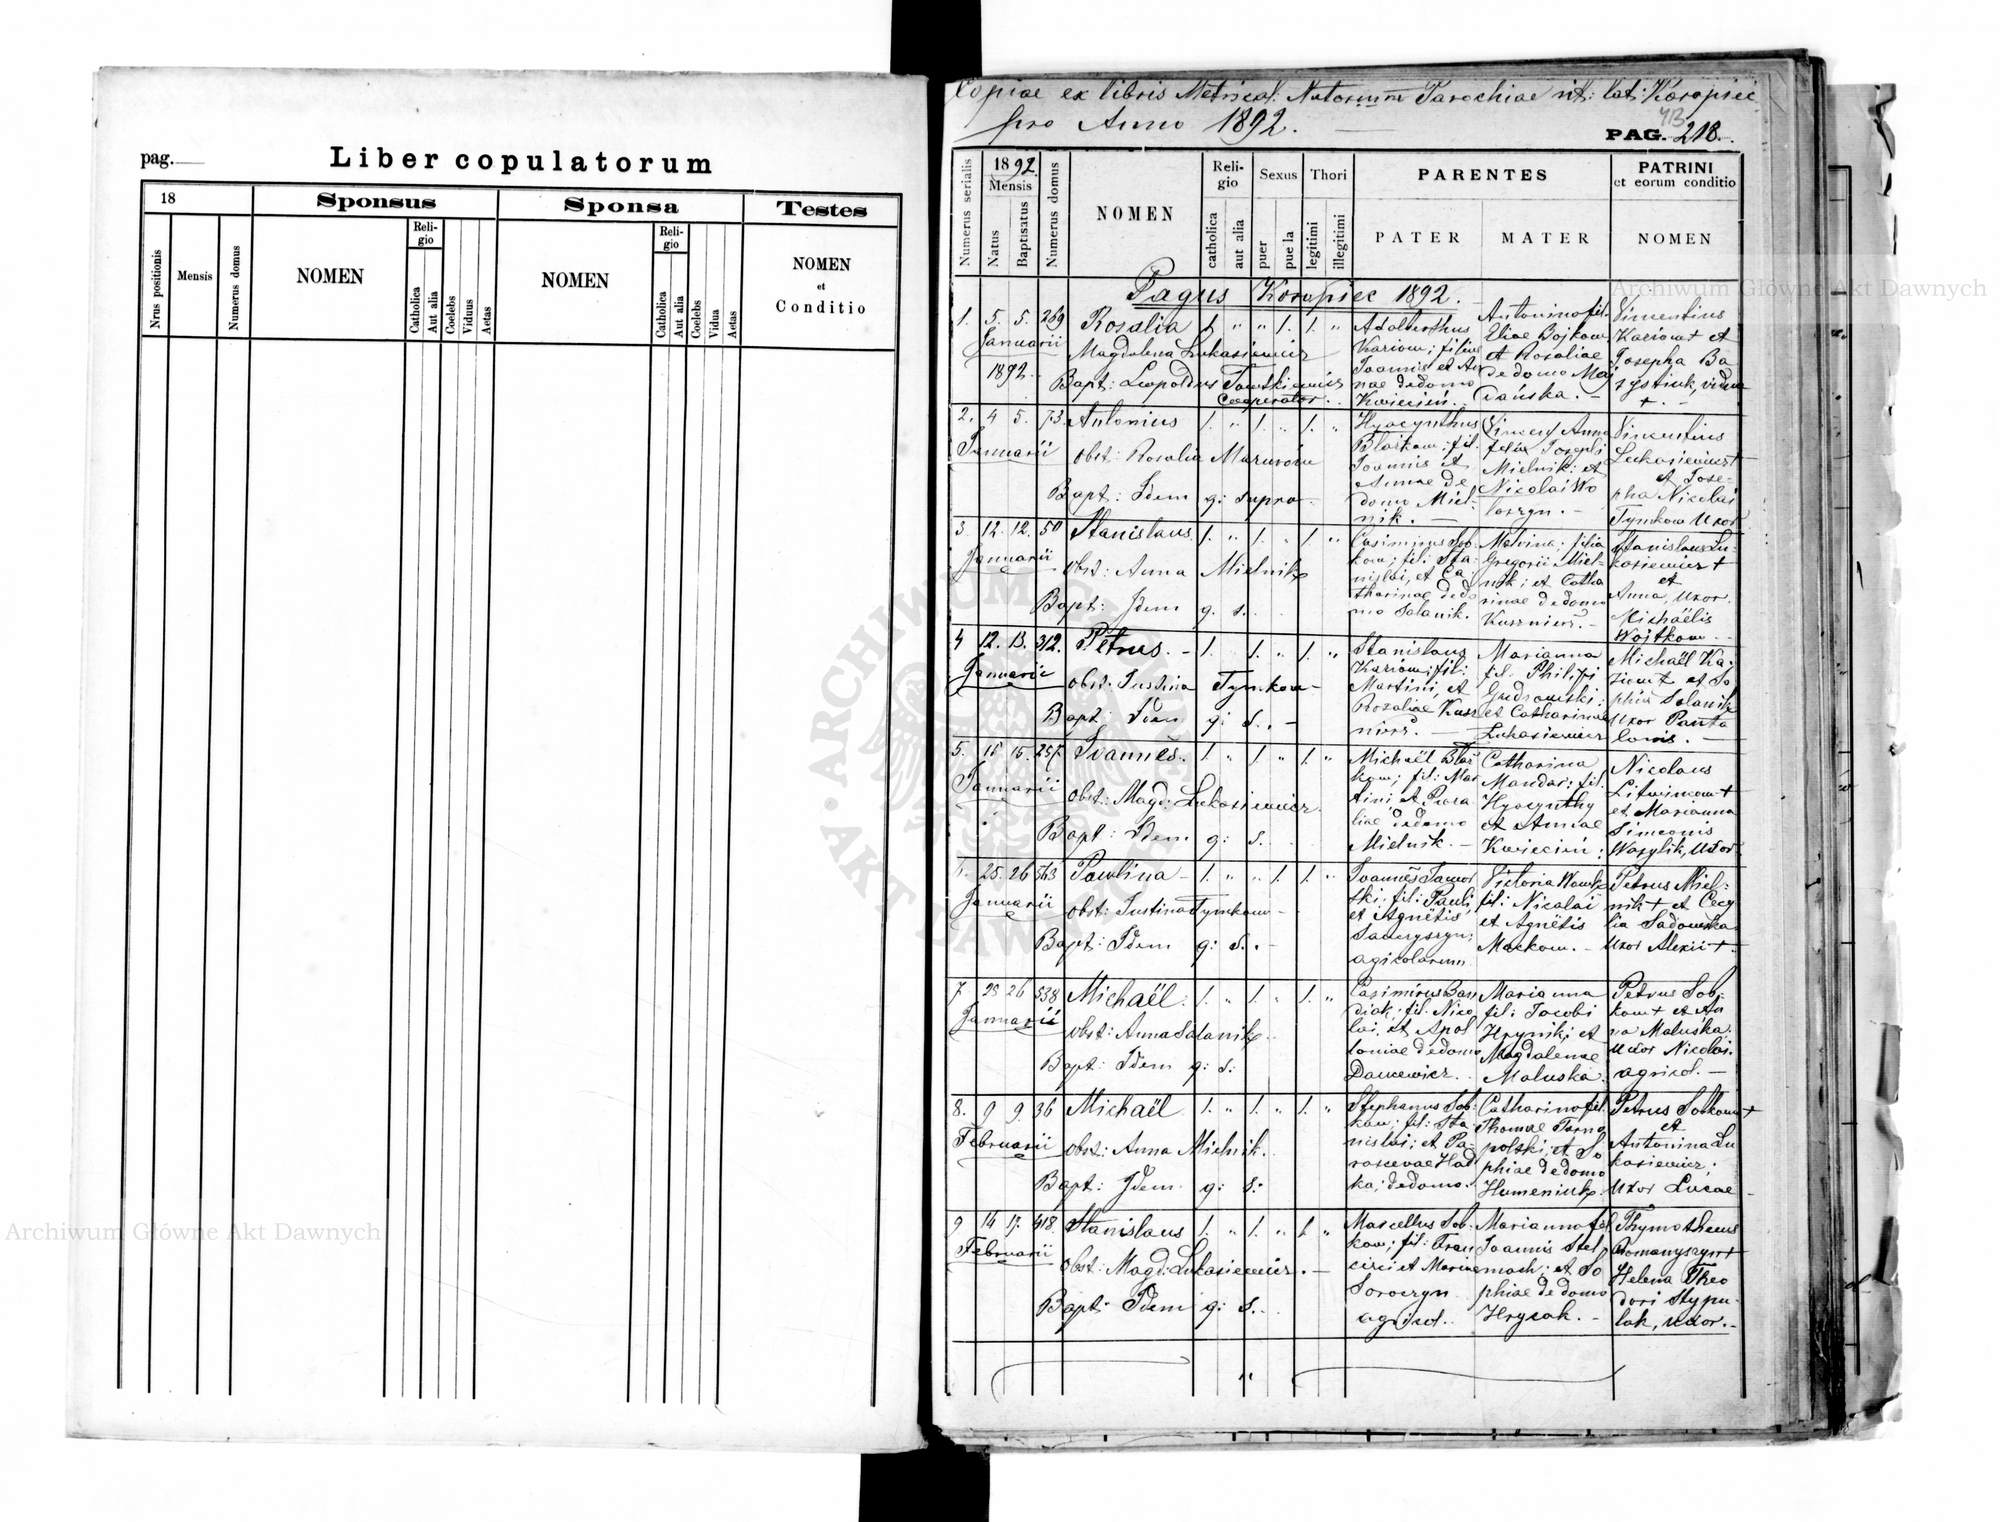 pag.
Liber copulatorum
18
Sponsus
Sponsa
Testes
Nrus positionis
Mensis
Numerus domus
NOMEN
Reli-
gio
Catholica
Aut alia
Coelebs
Viduus
Aetas
NOMEN
Reli-
gio
Catholica
Aut alia
Coelebs
Vidua
Aetas
NOMEN
et
Conditio
Copiae ex libris Metrical: Natorum Parochiae rit: lat: Koropiec
pro Anno 1892.
PAG. 218.
Numerus serialis
1892
Mensis
Natus
Baptisatus
Numerus domus
NOMEN
Reli-
gio
catholica
aut alia
Sexus
puer
puella
Thori
legitimi
illegitimi
PARENTES
PATER
MATER
PATRINI
et eorum conditio
NOMEN
Pagus Koropiec 1892.
1. 5. 5. 269 Rosalia 1. " " 1. 1. "
Januarii
Magdalena Lukasiewicz
1892
Bapt: Leopoldus
Cooperator
Adalberthus
Kariow; filius
Joannis et An
nae de domo
Kwiecień.
Antonina fil.
Eliae Bojkow
et Rosaliae
de domo
Vincentius
Kariow + et
Josepha Ba
+
2. 4 5. 73. Antonius 1. " 1. " 1. "
Januarii
obst: Rosalia
Bapt: Idem q: supra
Hyacynthus
Błaskow; fil.
Joannis et
Annae de
domo Miel-
nik.
Anna
filia Josephi
Mielnik; et
Nicolai Wo
loszyn.
Vincentius
Lukasiewicz +
et Jose-
pha Nicolai
Tymkow Uxor
3. 12. 12. 50 Stanislaus 1. " 1. " 1. "
Januarii
obst: Anna Mielnik
Bapt: Idem q. s.
Casimirus Sob-
kow; fil: Sta-
nislai, et Ca
tharinae de do
mo Salanik.
Malvina; filia
Gregorii Miel-
nik; et Catha
rinae de domo
Kusznierz.
Stanislaus Lu-
kasiewicz +
et
Anna, Uxor
Michaëlis
Wojtkow
4 12. 13. 312. Petrus. 1. 1. " 1. "
Januarii
obst. Justina Tymkow
Bapt: Idem q: s.
Stanislaus
Kariow; fil:
Martini, et
Rosaliae Kusz
nierz.
Marianna
fil. Philipi
et Catharinae
Lukasiewicz
Michaël Ka-
riow + et So
phia Salanik
Uxor Panta
lonis.
5. 15 15. 257. Joannes. 1. " 1. " 1. "
Januarii
obst: Magd: Lukasiewicz
Bapt: Idem q: s.
Michaël Błaś
kow; fil: Mar
tini et Rosa
liae de domo
Mielnik.
Catharina
Mandar; fil.
Hyacynthy
et Annae
Kwiecień;
Nicolaus
Litwinow +
et Marianna
Simeonis
Wasylik, Uxor
25. 26 563 Paulina 1. " " 1. 1. "
Januarii
obst: Justina Tymkow
Bapt: Idem q: s.
Joannes Jawor
ski: fil: Pauli,
et Agnëtis
agricolarum
Victoria
fil: Nicolai
et Agnëtis
Mackow.
Petrus Miel-
nik + et Cecy
lia Sadowska
Uxor Alexii +
7 25 26 538 Michaël. 1. " 1. " 1. "
Januarii
obst: Anna Salanik
Bapt: Idem q: s.
Casimirus Ban
diak; fil: Nico
lai. et Apol
loniae de domo
Dancewicz.
Marianna
fil: Jacobi
Hrynik; et
Magdalenae
Maluska.
Petrus Sob-
kow + et An
na Maluska
Uxor Nicolai.
agricol.
8. 9 9. 36 Michaël 1. " 1. " 1. "
Februarii
obst: Anna Mielnik.
Bapt: Idem q: s:
Stephanus Sob-
kow; fil: Sta
nislai; et Pa-
ka; de domo.
Catharina fil.
Thomae Tarno
polski, et So
phiae de domo
Humeniuk.
Petrus Sobkow +
et
Antonina Lu
kasiewicz,
Uxor Lucae
9 14 17. 418. Stanislaus 1. " 1. " 1. "
Februarii
obst: Magd: Lukasiewicz.
Bapt: Idem q: s.
Marcellus Sob-
kow; fil: Fran
cisci et Mariae
Soroczyn
agricol.
Marianna fil
Joannis Stel
mach; et So
phiae de domo
Hrycak.
Thymotheus
Romanyszyn +
Helena Theo
dori Stypu-
lak, Uxor.
Archiwum Główne Akt Dawnych
Archiwum Główne Akt Dawnych
ARCHIWUM GŁÓWNE AKT DAWNYCH